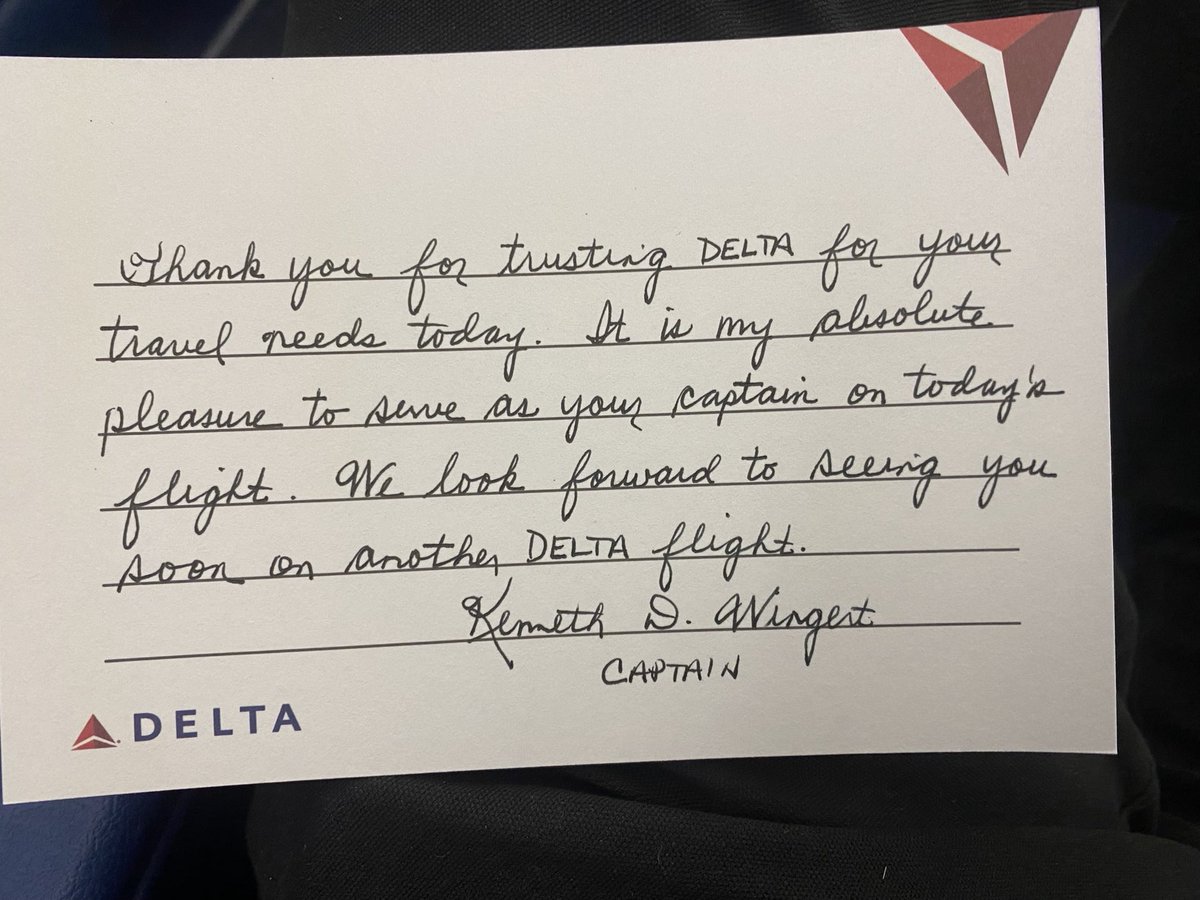 Thank you for trusting DELTA for your
travel needs today. It is my absolute
pleasure to serve as your captain on today's
flight. We look forward to seeing you
soon on another DELTA flight.
Kenneth D. Wingert
CAPTAIN
DELTA